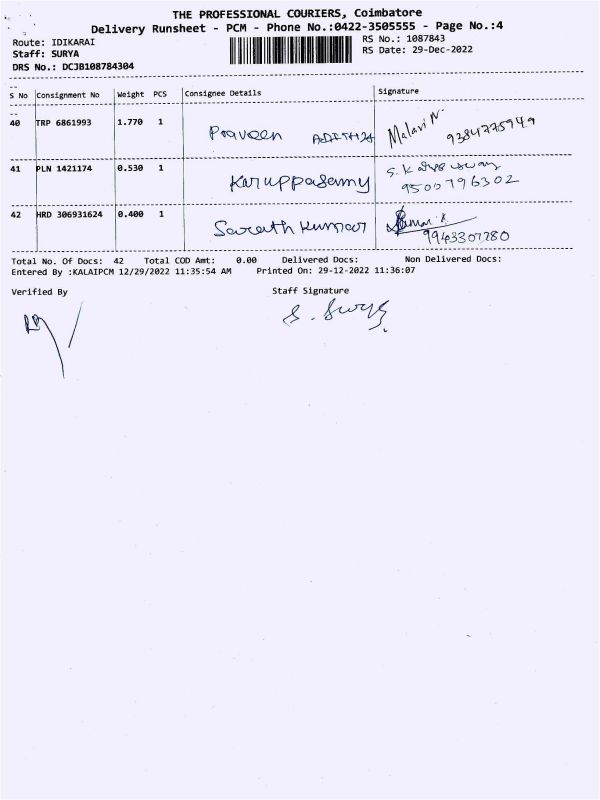 THE PROFESSIONAL COURIERS, Coimbatore
Delivery Runsheet - PCM - Phone No.:0422-3505555 - Page No.:4
Route: IDIKARAI
RS No.: 1087843
Staff: SURYA
RS Date: 29-Dec-2022
DRS No.: DCJB108784304
S No Consignment No Weight PCS Consignee Details Signature
40 TRP 6861993 1.770 1 Praveen Malavi N
9384775949
41 PLN 1421174 0.530 1 Karuppasamy
9500796302
42 HRD 306931624 0.400 1 Sarath Kumar
9943307280
Total No. Of Docs: 42 Total COD Amt: 0.00 Delivered Docs: Non Delivered Docs:
Entered By :KALAIPCM 12/29/2022 11:35:54 AM Printed On: 29-12-2022 11:36:07
Verified By Staff Signature
S. Surya